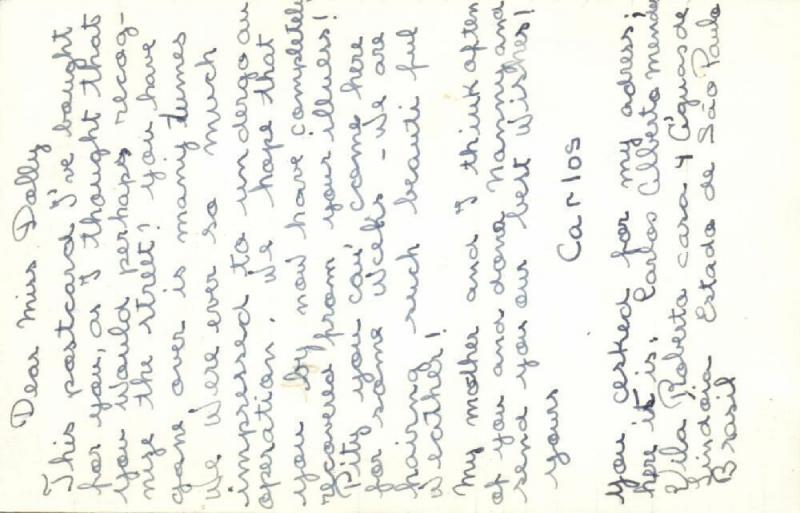 Dear Miss Dolly
This postcard I've bought
for you, as I thought that
you would perhaps recog-
nize the street! you have
gone over is many times
We were ever so much
impressed to undergo an
operation. We hope that
you by now have completely
recovered from your illness!
Pity you can' come here
for some weeks - We are
hairing such beauti ful
Weather!
My mother and I think often
of you and dona Nanny and
send you our best wishes!
yours
Carlos
you asked for my adress;
here it is:
Carlos Alberto Mendes
Vila Roberto casa 4 Águas de
Lindóia Estado de São Paulo
Brasil